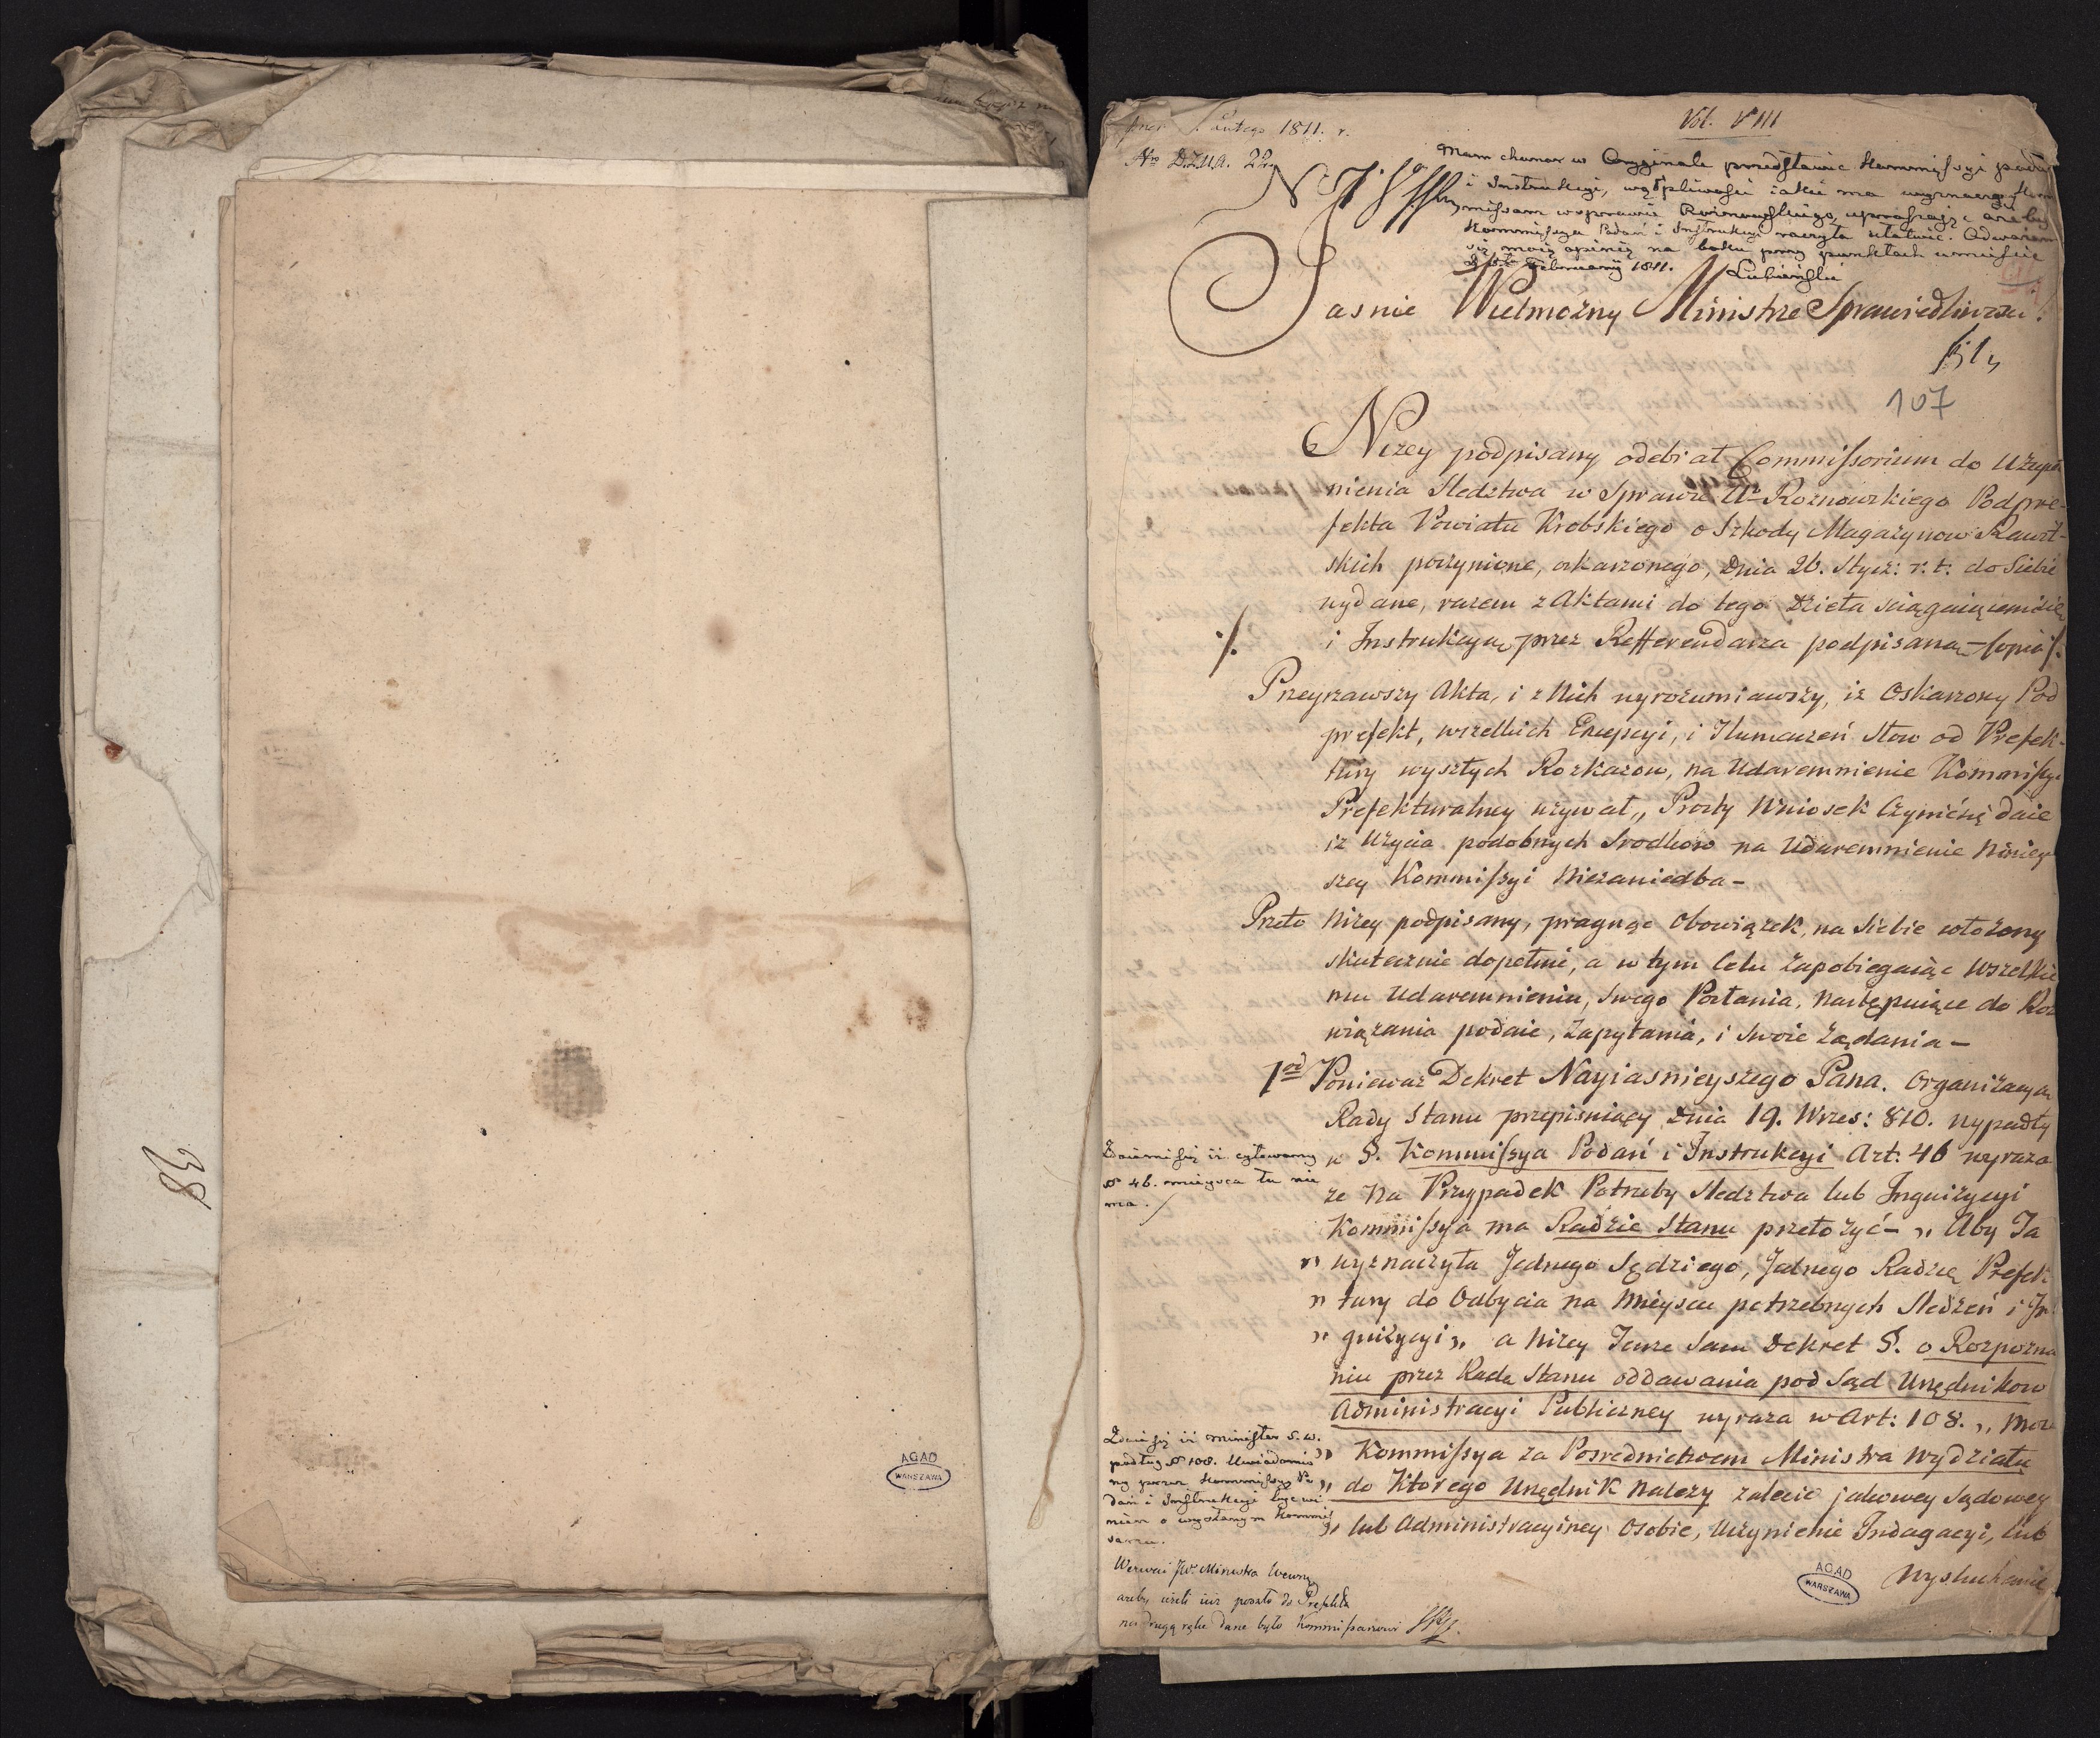 38
AGAD
WARSZAWA
Vol. VIII
Lutego 1811. r.
Nro D.Z.U.A. 22.
Mam chonor w Oryginale przedstawic Kommissyi podań
i Instrukcyi, wątpliwosci iakie ma wyznaczony Kom
missarz w sprawie Roznowskiego, upraszając azeby
Kommissya Podań i Instrukcyi raczyła ułatwić. Odważam
się moią opinię na boku przy punktach umieścić
Februarij 1811.
Lubieński
Jasnie Wielmożny Ministrze Sprawiedliwosci!
107
Niżey podpisany odebrał Commissorium do Uzupeł
nienia Sledztwa w Sprawie Ur Roznowskiego Podpre-
fekta Powiatu Krobskiego o Szkody Magazynow Rawit-
skich poczynione, oskarzonego, Dnia 26. Stycz: r. t. do Siebie
wydane, razem z Aktami do tego Dzieła sciągaiącemi się
i Instrukcyą przez Refferendarza podpisaną
Przeyrzawszy Akta, i z Nich wyrozumiawszy, iz Oskarzony Pod
prefekt, wszelkich Excepcyi, i Tłumaczeń Słow od Prefek-
tury wyszłych Rozkazow, na Udaremnienie Kommissyi
Prefekturalney uzywał, Prosty Wniosek Czynić się daie
iz Uzycia podobnych Srodkow na Udaremnienie Niniey
szey Kommissyi Niezaniedba -
Przeto Niżey podpisany, pragnąc Obowiązek, na Siebie włożony
skutecznie dopełnić, a w tym Celu Zapobiegaiąc Wszelkie
mu Udaremnieniu, Swego Posłania, następuiące do Roz
wiązania podaie, Zapytania, i Swoie Ządania -
1od Poniewaz Dekret Nayiasnieyszego Pana. Organizacyą
Rady Stanu przepisuiący Dnia 19. Wrzes: 810. wypadły
w §. Kommissya Podań i Instrukcyi Art: 46 wyraza
ze Na Przypadek Potrzeby Sledztwa lub Inquizycyi
Kommissya ma Radzie Stanu przełożyć - „ Aby Ta
„ wyznaczyła Jednego Sędziego, Jednego Radzcę Prefek
„ tury do Odbycia na Mieyscu potrzebnych Sledzeń i In
„ quizycyi „ a Niżey Tenze Sam Dekret §. o Rozpozna
niu przez Radę Stanu oddawania pod Sąd Urzędnikow
Administracyi Publiczney wyraza w Art: 108. „ Moze
„ Kommissya za Posrednictwem Ministra Wydziału
„ do Ktorego Urzędnik Nalezy zalecić jakowey Sądowey
„ lub Administracyiney Osobie, Uczynienie Indagacyi, lub
Wysłuchanie
Zdaie mi się iż cytowany
§ 46. mieysca tu nie
ma.
Zdaie się iż Minister S. W.
podług § 108. Uwiadomio
ny przez Kommissyę Po
dań i Instrukcyi
o wysłanym Kommis
sarzu.
Wezwać JW. Ministra Wewnę
azeby iezeli iuz poszło do Prefekta
na drugą rękę dane było Kommissarzowi
AGAD
WARSZAWA